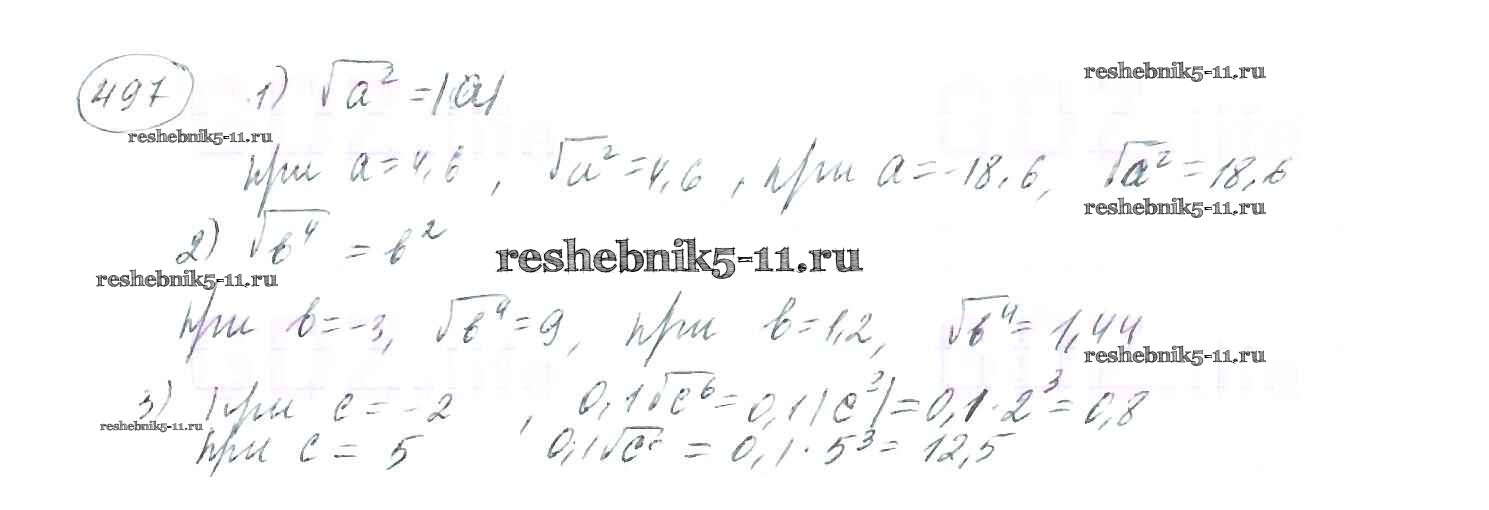 497 1) √a² = |a| reshebnik5-11.ru
reshebnik5-11.ru
при a = 4,6, √a² = 4,6, при a = -18,6, √a² = 18,6
reshebnik5-11.ru
2) √b⁴ = b² reshebnik5-11.ru
reshebnik5-11.ru
при b = -3, √b⁴ = 9, при b = 1,2, √b⁴ = 1,44
reshebnik5-11.ru
3) при c = -2, 0,1√c⁶ = 0,1|c³| = 0,1·2³ = 0,8
reshebnik5-11.ru
при c = 5 0,1√c⁶ = 0,1·5³ = 12,5